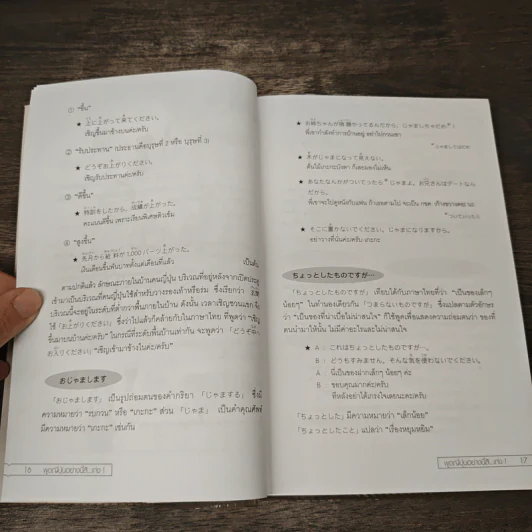 ① "ขึ้น"
★ 上に上がって来てください。
เชิญขึ้นมาข้างบนค่ะ/ครับ
② "รับประทาน" (ประธานคือบุรุษที่ 2 หรือ บุรุษที่ 3)
★ どうぞお上がりください。
เชิญรับประทานค่ะ/ครับ
③ "ดีขึ้น"
★ 特訓をしたから、成績が上がった。
คะแนนดีขึ้น เพราะเรียนพิเศษติวเข้ม
④ "สูงขึ้น"
★ 先月から給料が1,000バーツ上がった。
เงินเดือนขึ้นพันบาทตั้งแต่เดือนที่แล้ว
ตามปกติแล้ว ลักษณะภายในบ้านคนญี่ปุ่น บริเวณที่อยู่หลังจากเปิดประตู
เข้ามาเป็นบริเวณที่คนญี่ปุ่นใช้สำหรับวางรองเท้าหรือร่ม ซึ่งเรียกว่า 玄関
บริเวณนี้จะอยู่ในระดับที่ต่ำกว่าพื้นภายในบ้าน ดังนั้น เวลาเชิญชวนแขก จึง
ใช้「お上がりください」ซึ่งว่าไปแล้วก็คล้ายกับในภาษาไทย ที่พูดว่า "เชิญ
ขึ้นมาบนบ้านค่ะ/ครับ" ในกรณีที่ระดับพื้นบ้านเท่ากัน จะพูดว่า「どうぞ、
お入りください」"เชิญเข้ามาข้างในค่ะ/ครับ"
おじゃまします
「おじゃまします」เป็นรูปถ่อมตนของคำกริยา「じゃまする」ซึ่งมี
ความหมายว่า "รบกวน" หรือ "เกะกะ" ส่วน「じゃま」เป็นคำคุณศัพท์
มีความหมายว่า "เกะกะ" เช่นกัน
16 พูดญี่ปุ่นอย่างนี้สิ...เก่ง 1
★ お姉ちゃんが宿題やってるんだから、じゃましちゃだめ*!
พี่เขากำลังทำการบ้านอยู่ อย่าไปกวนเขา
★ 木がじゃまになって見えない。
ต้นไม้เกะกะบังตา ก็เลยมองไม่เห็น
★ あなたなんかがついてったら*じゃまよ。お兄さんはデートなん
だから。
★ そこに置かないでください。じゃまになりますから。
อย่าวางที่นั่นค่ะ/ครับ เกะกะ
ちょっとしたものですが…
「ちょっとしたものですが」เทียบได้กับภาษาไทยที่ว่า "เป็นของเล็กๆ
น้อยๆ" ในทำนองเดียวกัน「つまらないものですが」ซึ่งแปลตามตัวอักษร
ว่า "เป็นของที่น่าเบื่อไม่น่าสนใจ" ก็ใช้พูดเพื่อแสดงความถ่อมตนว่า ของที่
ตนนำมาให้นั้น ไม่มีค่าอะไรและไม่น่าสนใจ
★ A : これはちょっとしたものですが…。
B : どうもすみません。そんな気を使わないでください。
A : นี่เป็นของฝากเล็กๆ น้อยๆ ค่ะ
B : ขอบคุณมากค่ะ/ครับ
ทีหลังอย่าได้เกรงใจเลยนะคะ/ครับ
「ちょっとした」มีความหมายว่า "เล็กน้อย"
「ちょっとしたこと」แปลว่า "เรื่องหยุมหยิม"
พูดญี่ปุ่นอย่างนี้สิ...เก่ง 1 17